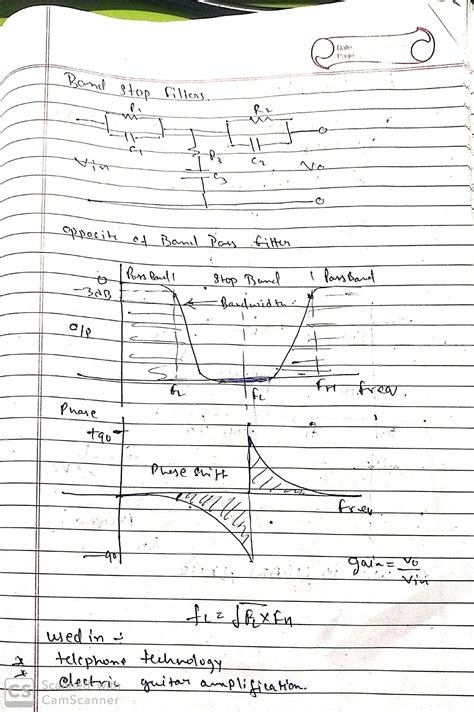 Date
Page
Band Stop Filters.
R1 R2
C1 R3 C2
Vin C3 Vo
opposite of Band Pass filter
Pass Band Stop Band Pass Band
0
-3dB
Bandwidth
o/p
fL fc FH freq.
Phase
+90
Phase shift
freq.
-90
gain = Vo
Vin
fc = √FL×FH
used in :-
* telephone technology
* electric guitar amplification.
CS
CamScanner